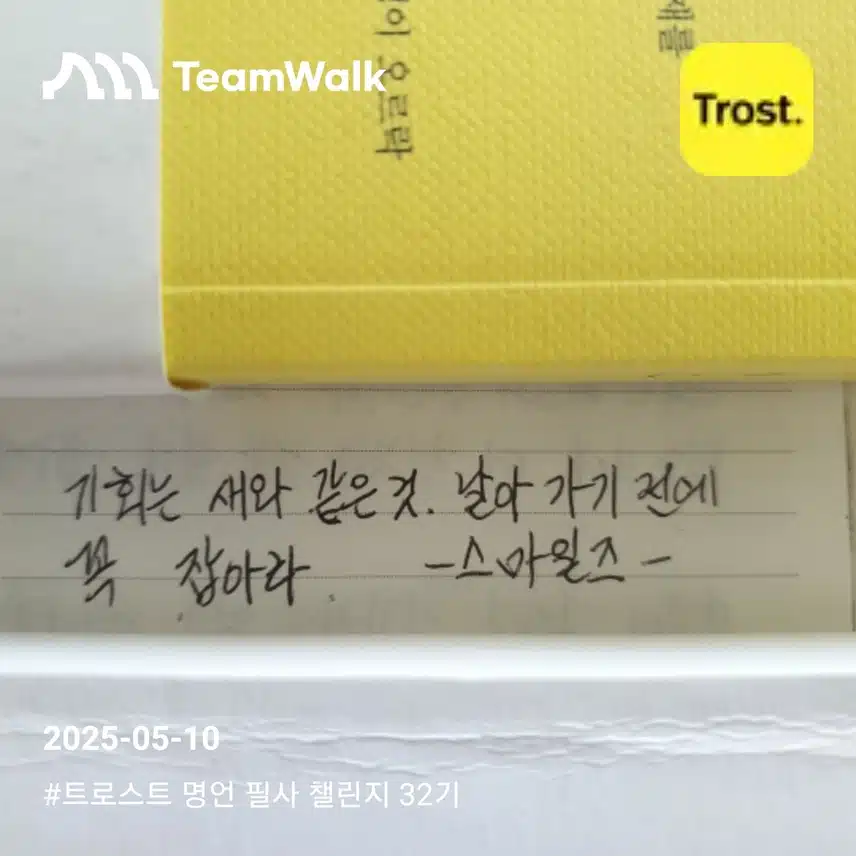 TeamWalk
Trost.
이 오르락
제를
기회는 새와 같은 것. 날아 가기 전에
꼭 잡아라. -스마일즈-
2025-05-10
#트로스트 명언 필사 챌린지 32기